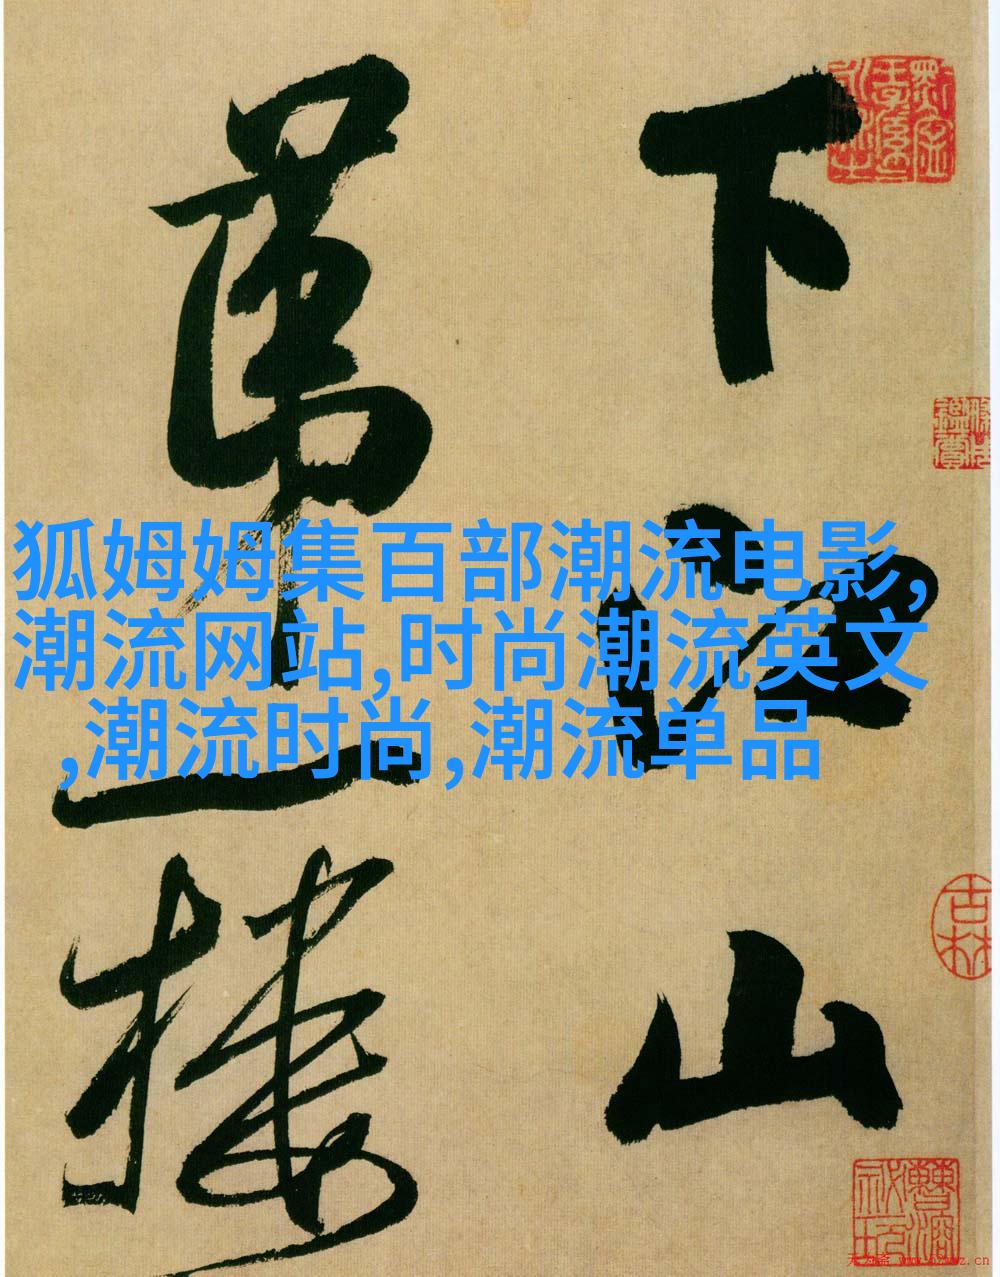 下江山
第一樓
狐姆姆集百部潮流电影,
潮流网站,时尚潮流英文
,潮流时尚,潮流单品